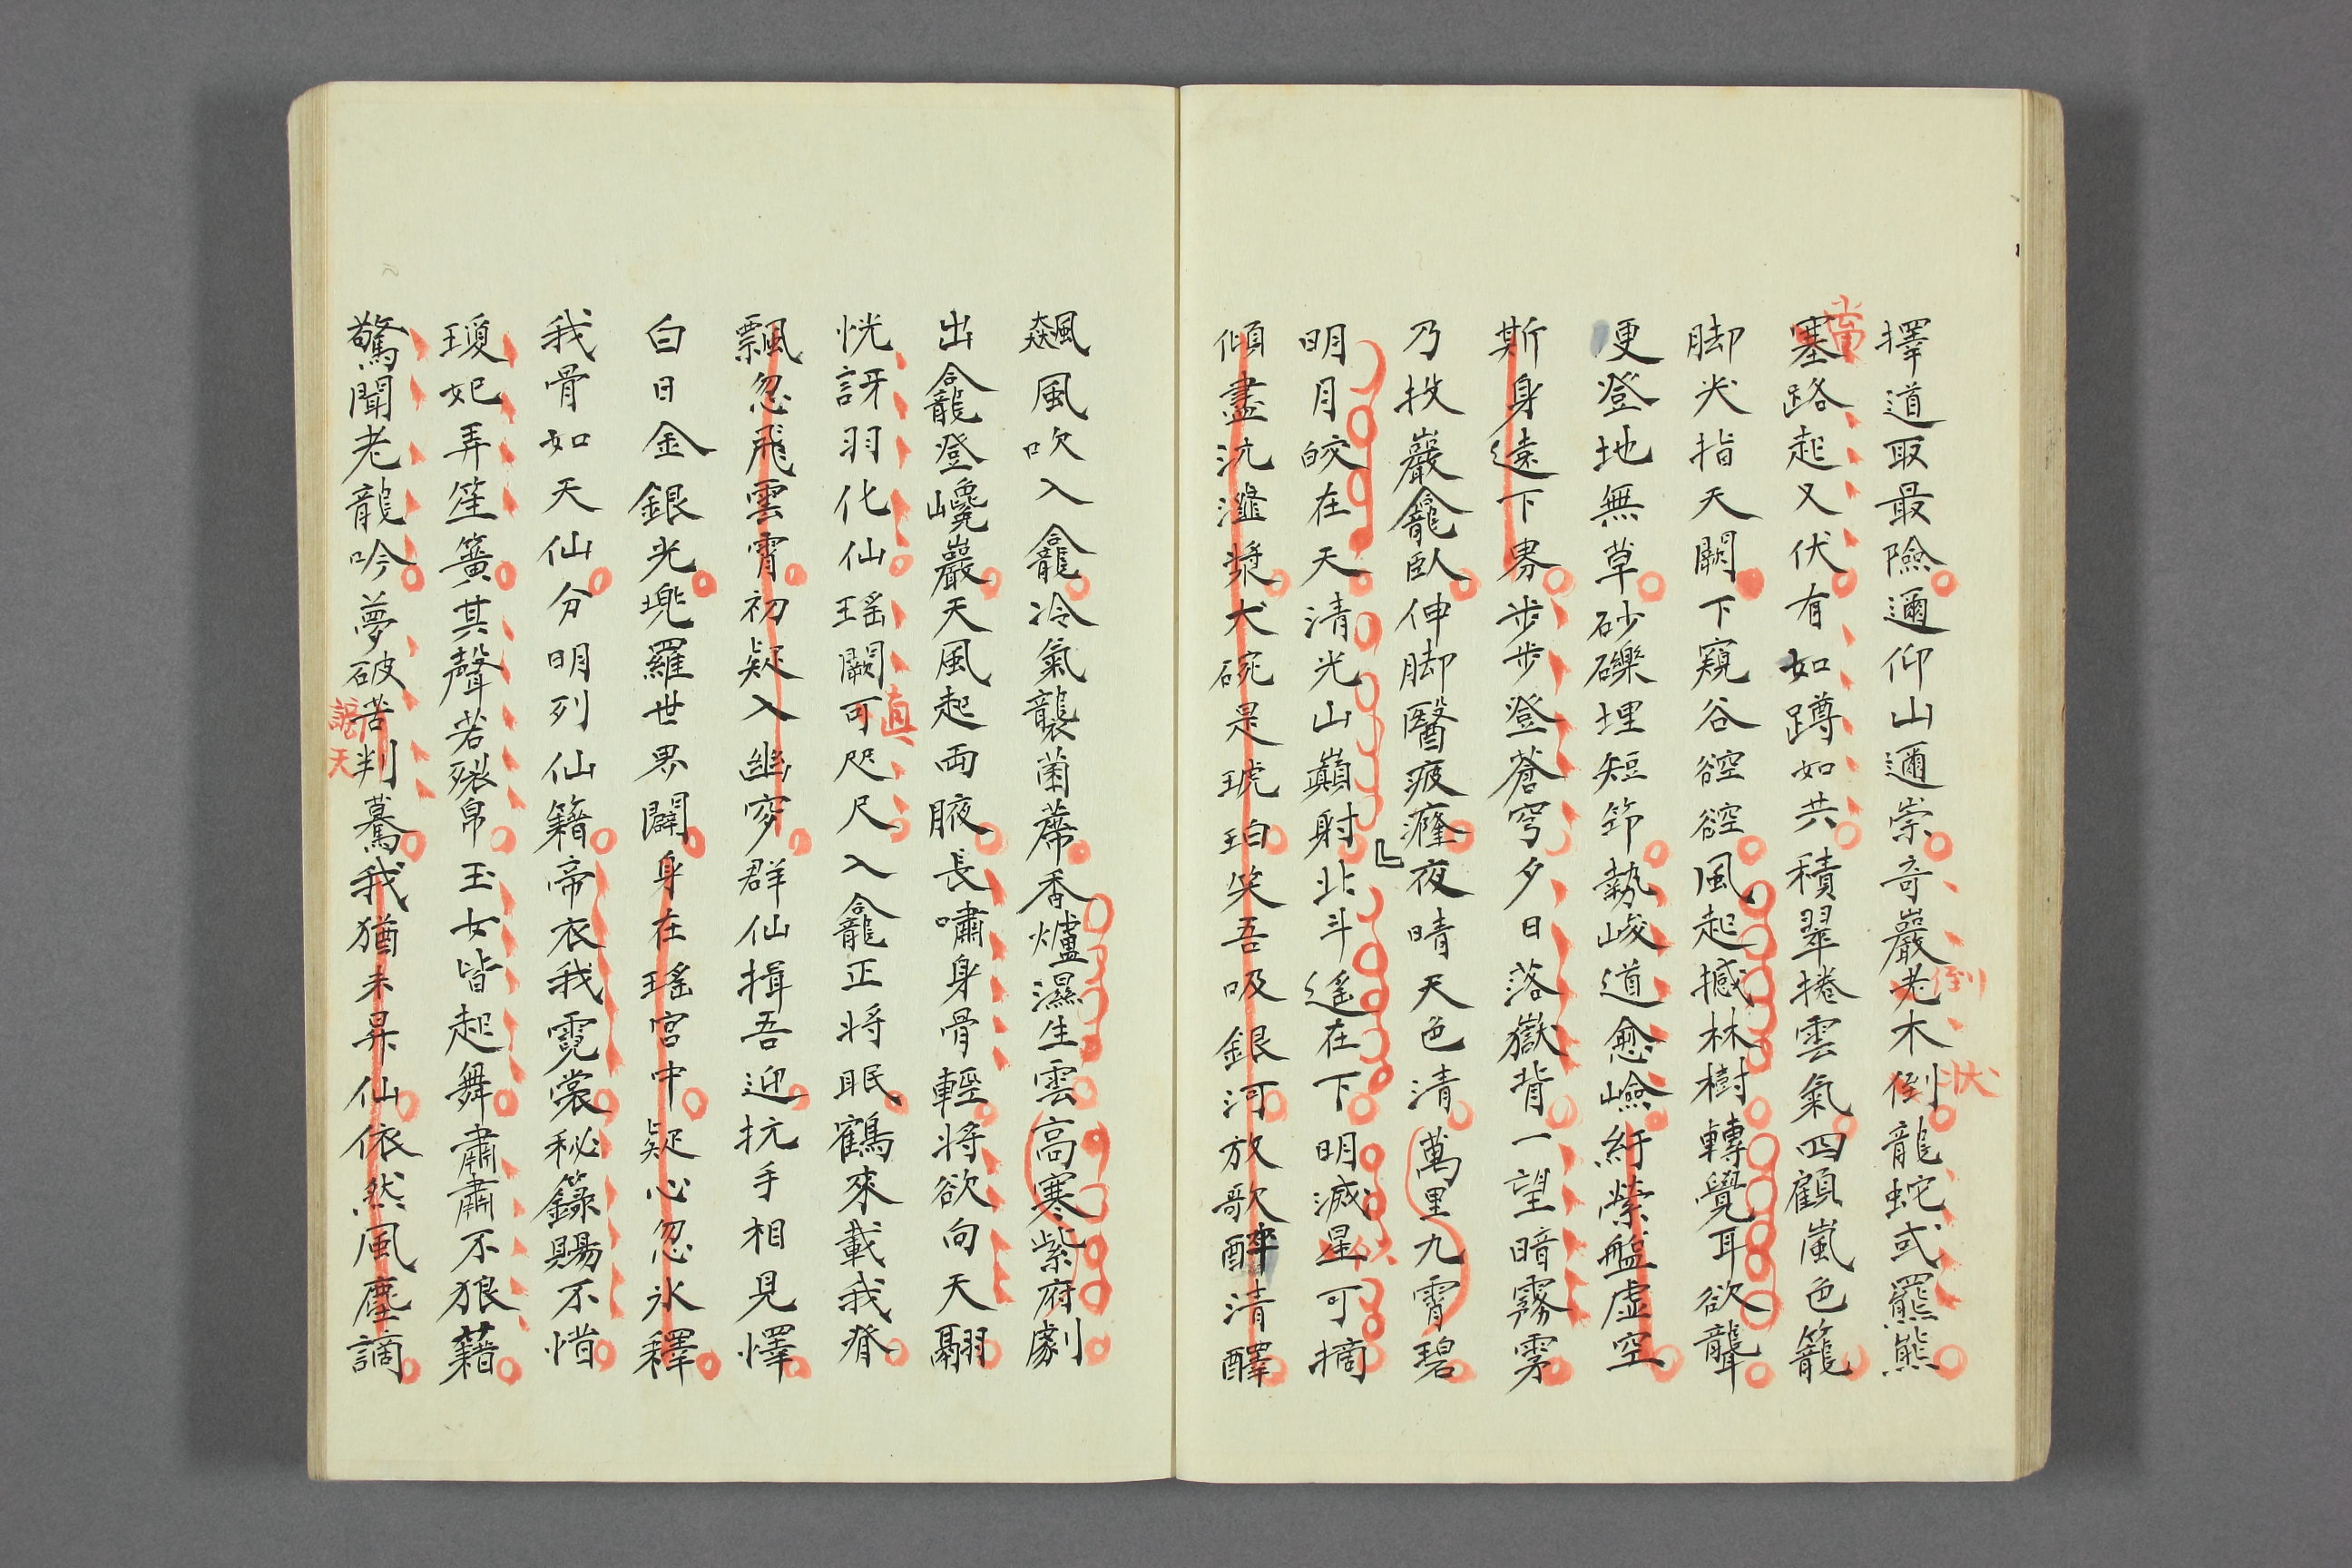 擇道取最險邇仰山邇崇奇巖老木倒龍蛇或羆熊
倒
狀
當
塞路起又伏有如蹲如共積翠捲雲氣四顧嵐色籠
脚尖指天闕下窺谷谾谾風起撼林樹轉覺耳欲聾
更登地無草砂礫埋短筇勢峻道愈嶮紆縈盤虛空
斯身遠下界步步登蒼穹夕日落嶽背一望暗霧雺
乃投巖龕臥伸脚醫疲癃夜晴天色清萬里九霄碧
明月皎在天清光山巔射北斗遙在下明滅星可摘
傾盡沆瀣漿犬碗是琥珀笑吾吸銀河放歌醉清醳
飇風吹入龕冷氣襲菌蓆香爐濕生雲高寒紫府劇
出龕登巉巖天風起両腋長嘯身骨輕將欲向天翮
恍訝羽化仙瑤闕可咫尺入龕正將眠鶴來載我脊
直
飄忽飛雲霄初疑入幽穸群仙揖吾迎抗手相見懌
白日金銀光兜羅世界闢身在瑤宮中疑心忽氷釋
我骨如天仙分明列仙籍帝衣我霓裳秘籙賜不惜
瓊妃弄笙簧其聲若裂帛玉女皆起舞肅肅不狼藉
驚聞老龍吟夢破苦判驀我猶未昇仙依然風塵謫
謡
天